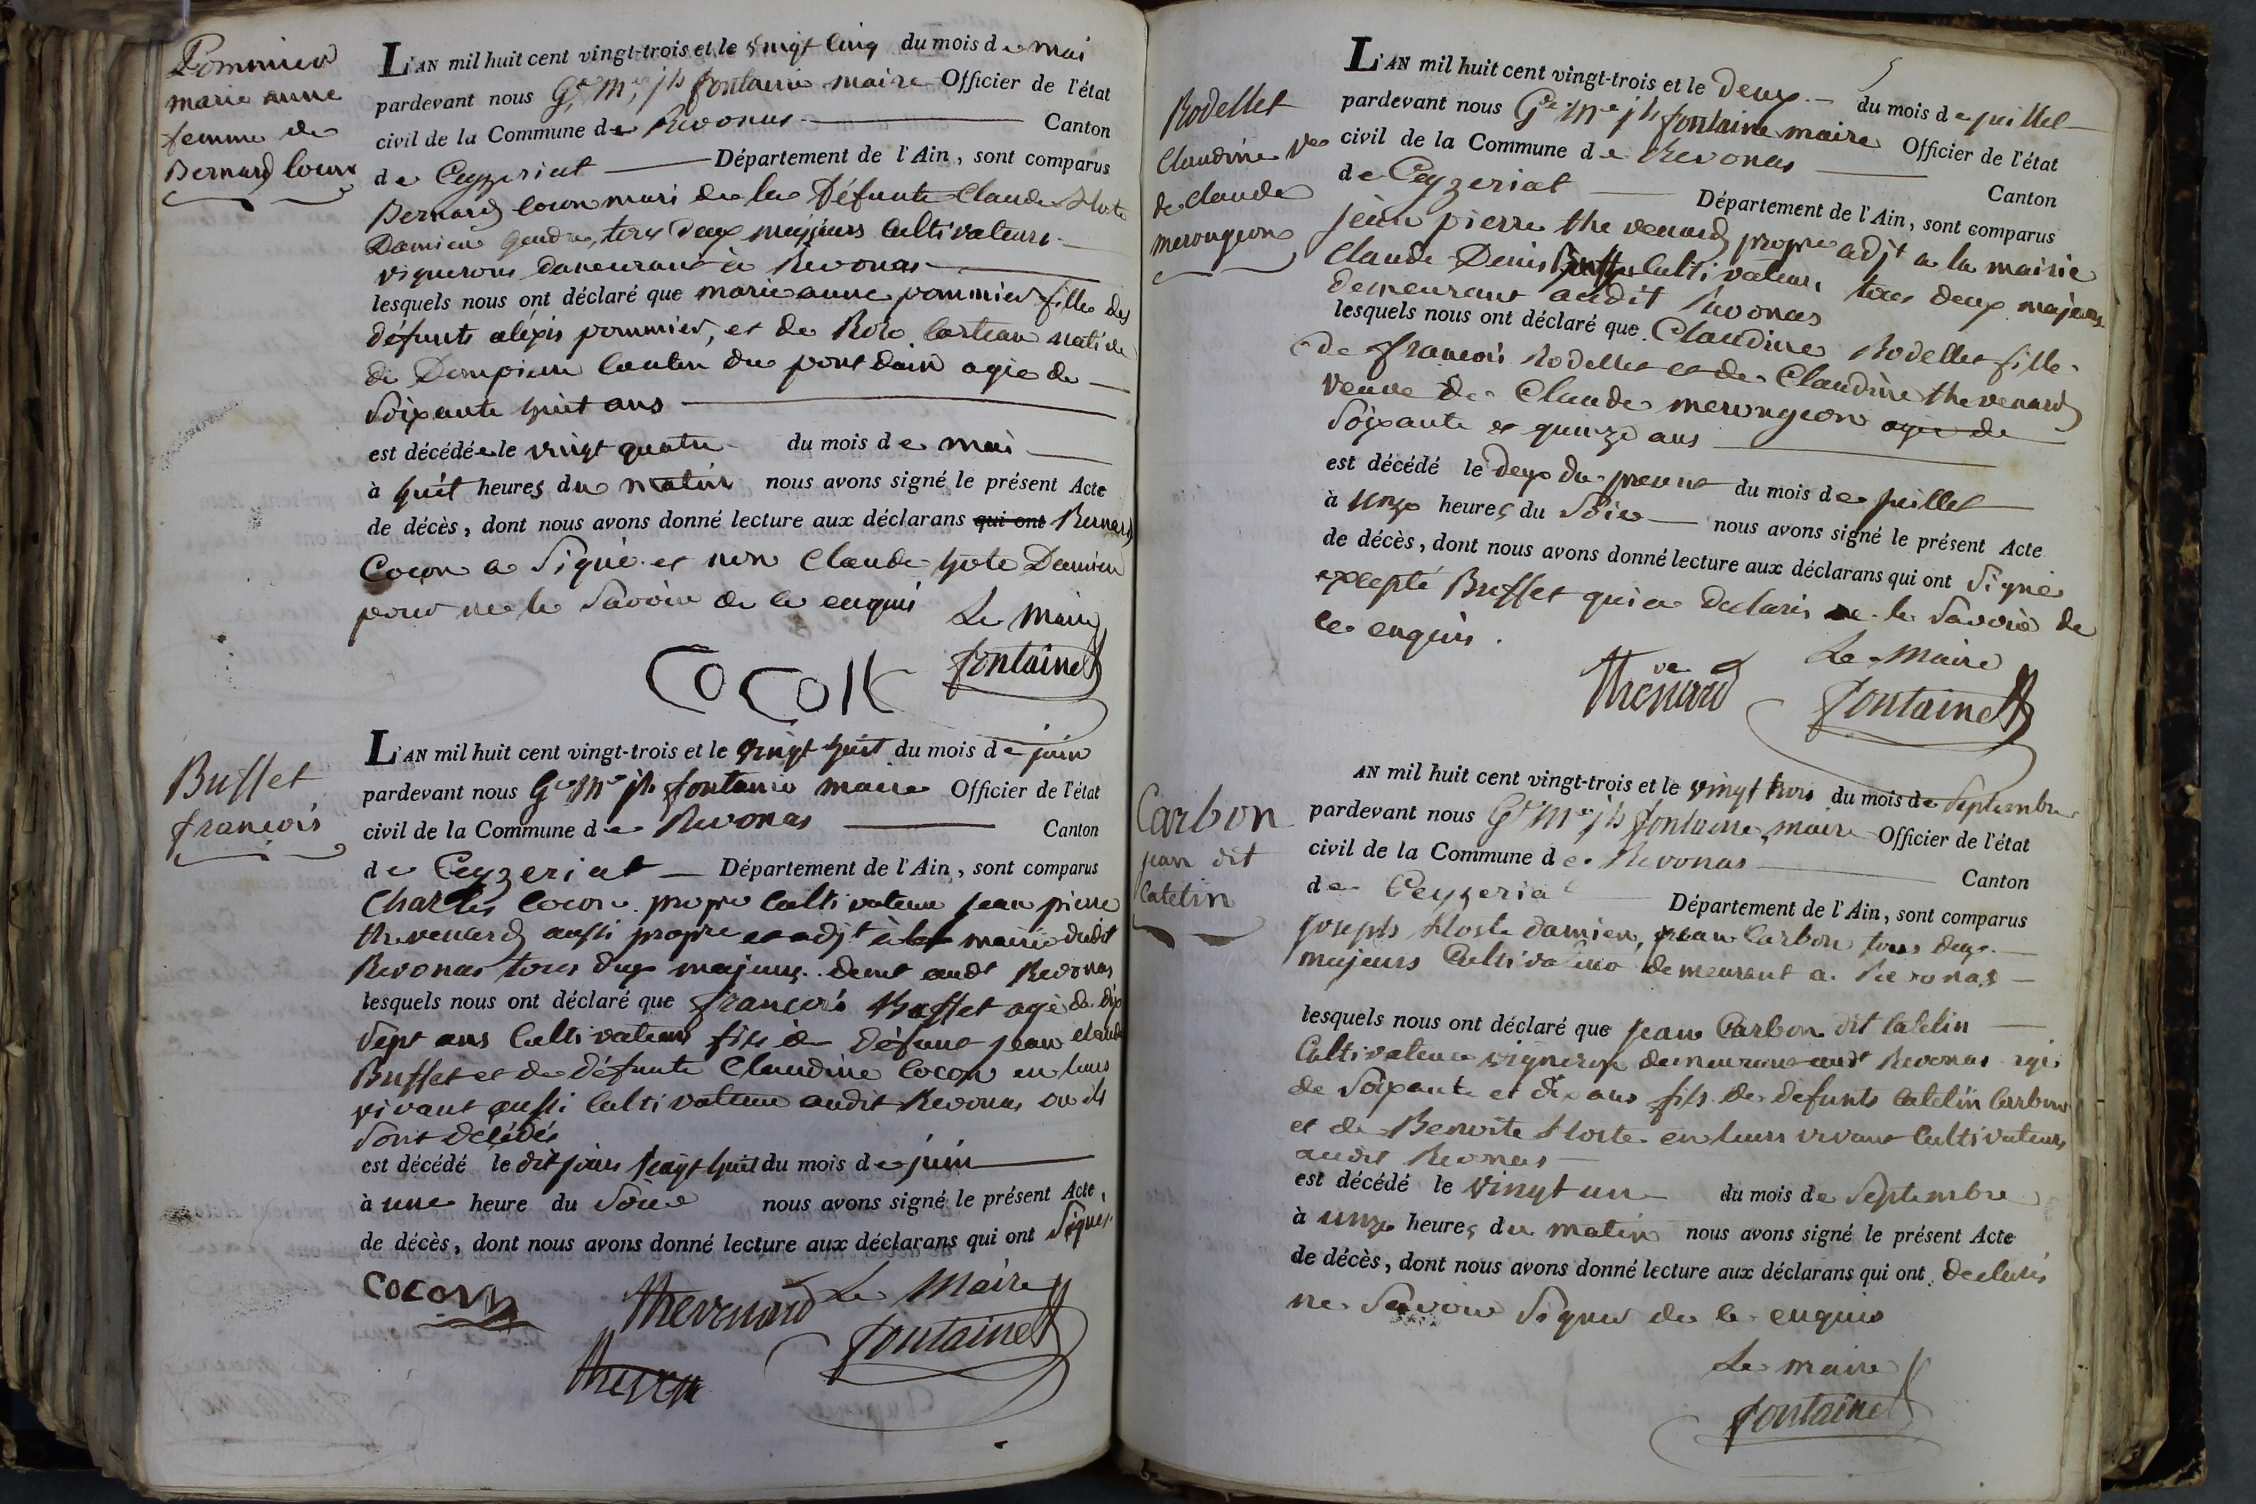 Pommier
marie anne
femme de
Bernard Cocon
L'AN mil huit cent vingt-trois et le vingt cinq du mois de mai
pardevant nous Ge. Me. jh fontaine maire Officier de l'état
civil de la Commune de Revonas Canton
de Ceyzeriat Département de l'Ain, sont comparus
Bernard Cocon mari de la Défunte Claude Hote
Damien gendre, tous deux majeurs Cultivateurs
vignerons demeurant à Revonas
lesquels nous ont déclaré que marie anne pommier fille des
défunts aléxis pommier, et de Roze native
de Dompierre Canton du pont dain agée de
Soixante huit ans
est décédée le vingt quatre du mois de mai
à huit heures du matin nous avons signé le présent Acte
de décès, dont nous avons donné lecture aux déclarans qui ont Bernard
Cocon a Signé et non Claude hote Damien
pour ne le Savoir de ce enquis Le Maire
COCON fontaine
Buffet
françois
L'AN mil huit cent vingt-trois et le vingt huit du mois de juin
pardevant nous Ge Me jh fontaine maire Officier de l'état
civil de la Commune de Revonas Canton
de Ceyzeriat Département de l'Ain, sont comparus
Charles Cocon propre Cultivateur jean pierre
thevenard aussi propre et adjt à la mairie dudit
Revonas tous deux majeurs demt audt Revonas
lesquels nous ont déclaré que françois Buffet agé de dix
Sept ans Cultivateur fils de Défunt jean claude
Buffet et de défunte Claudine Cocon en leurs
vivant aussi Cultivateur audit Revonas ou ils
Sont décédés
est décédé le dit jour vingt huit du mois de juin
à une heure du Soir nous avons signé le présent Acte,
de décès, dont nous avons donné lecture aux déclarans qui ont Signé.
COCON thevenard Le Maire
fontaine
Rodellet
Claudine ve
de claude
merongeon
L'AN mil huit cent vingt-trois et le deux du mois de juillet
pardevant nous Ge Me jh fontaine maire Officier de l'état
civil de la Commune de Revonas Canton
de Ceyzeriat Département de l'Ain, sont comparus
jean pierre thevenard propre adjt a la mairie
Claude Denis Buffet Cultivateur, tous deux majeurs
demeurant audit Revonas
lesquels nous ont déclaré que Claudine Rodellet fille
de françois Rodellet et de Claudine thevenard
veuve de Claude merongeon agée de
Soixante et quinze ans
est décédé le deux du present du mois de juillet
à unze heures du Soir nous avons signé le présent Acte
de décès, dont nous avons donné lecture aux déclarans qui ont Signé
excepté Buffet qui a declaré ne le Savoir de
ce enquis.
Le Maire
thevenard fontaine
Carbon
jean dit
Catelin
AN mil huit cent vingt-trois et le vingt trois du mois de Septembre
pardevant nous Ge Me jh fontaine maire Officier de l'état
civil de la Commune de Revonas Canton
de Ceyzeriat Département de l'Ain, sont comparus
joseph Hoste damien, jean Carbon tous deux
majeurs Cultivateurs demeurant a Revonas
lesquels nous ont déclaré que jean Carbon dit Catelin
Cultivateur vigneron demeurant audt Revonas agé
de Soixante et dix ans fils de defunts Catelin Carbon
et de Benoite Hoste en leurs vivant Cultivateurs
audit Revonas
est décédé le vingt un du mois de Septembre
à unze heures du matin nous avons signé le présent Acte
de décès, dont nous avons donné lecture aux déclarans qui ont declaré
ne Savoir Signer de ce enquis
Le maire
fontaine